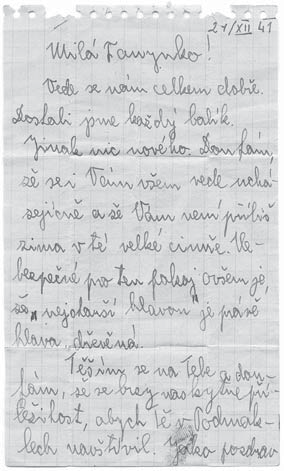 21/XII 41
Milá Fawynko!
Vede se nám celkem dobře.
Dostali jsme každý balík.
Jinak nic nového. Doufám,
že se i Vám všem vede uchá-
zejícně a že Vám není příliš
zima v té velké cimře. Ne-
bezpečné pro ten pokoj ovšem je,
že „nejchauší hlavou" je právě
hlava dřevěná.
Těším se na Tebe a dou-
fám, že se brzy naskytne pří-
ležitost, abych Tě v Vodmak-
lech navštívil. pozdrav